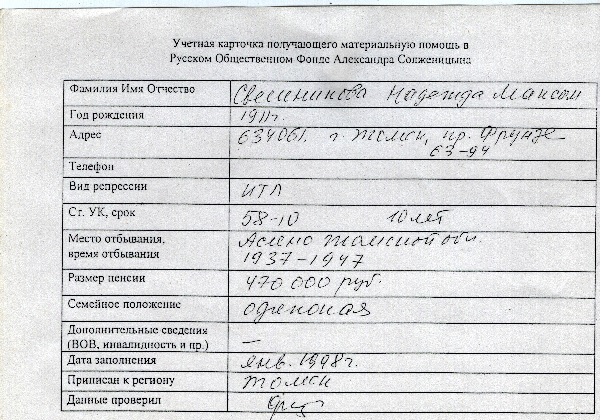 Учетная карточка получающего материальную помощь в
Русском Общественном Фонде Александра Солженицына
Фамилия Имя Отчество Надежда Максим
Год рождения 1911г.
Адрес 634061. г. Томск, пр. Фрунзе
63-94
Телефон
Вид репрессии ИТЛ
Ст. УК, срок 58-10 10 лет
Место отбывания, Асино Томской обл.
время отбывания 1937-1947
Размер пенсии 470 000 руб.
Семейное положение одинокая
Дополнительные сведения
(ВОВ, инвалидность и пр.) —
Дата заполнения янв. 1998г.
Приписан к региону Томск
Данные проверил